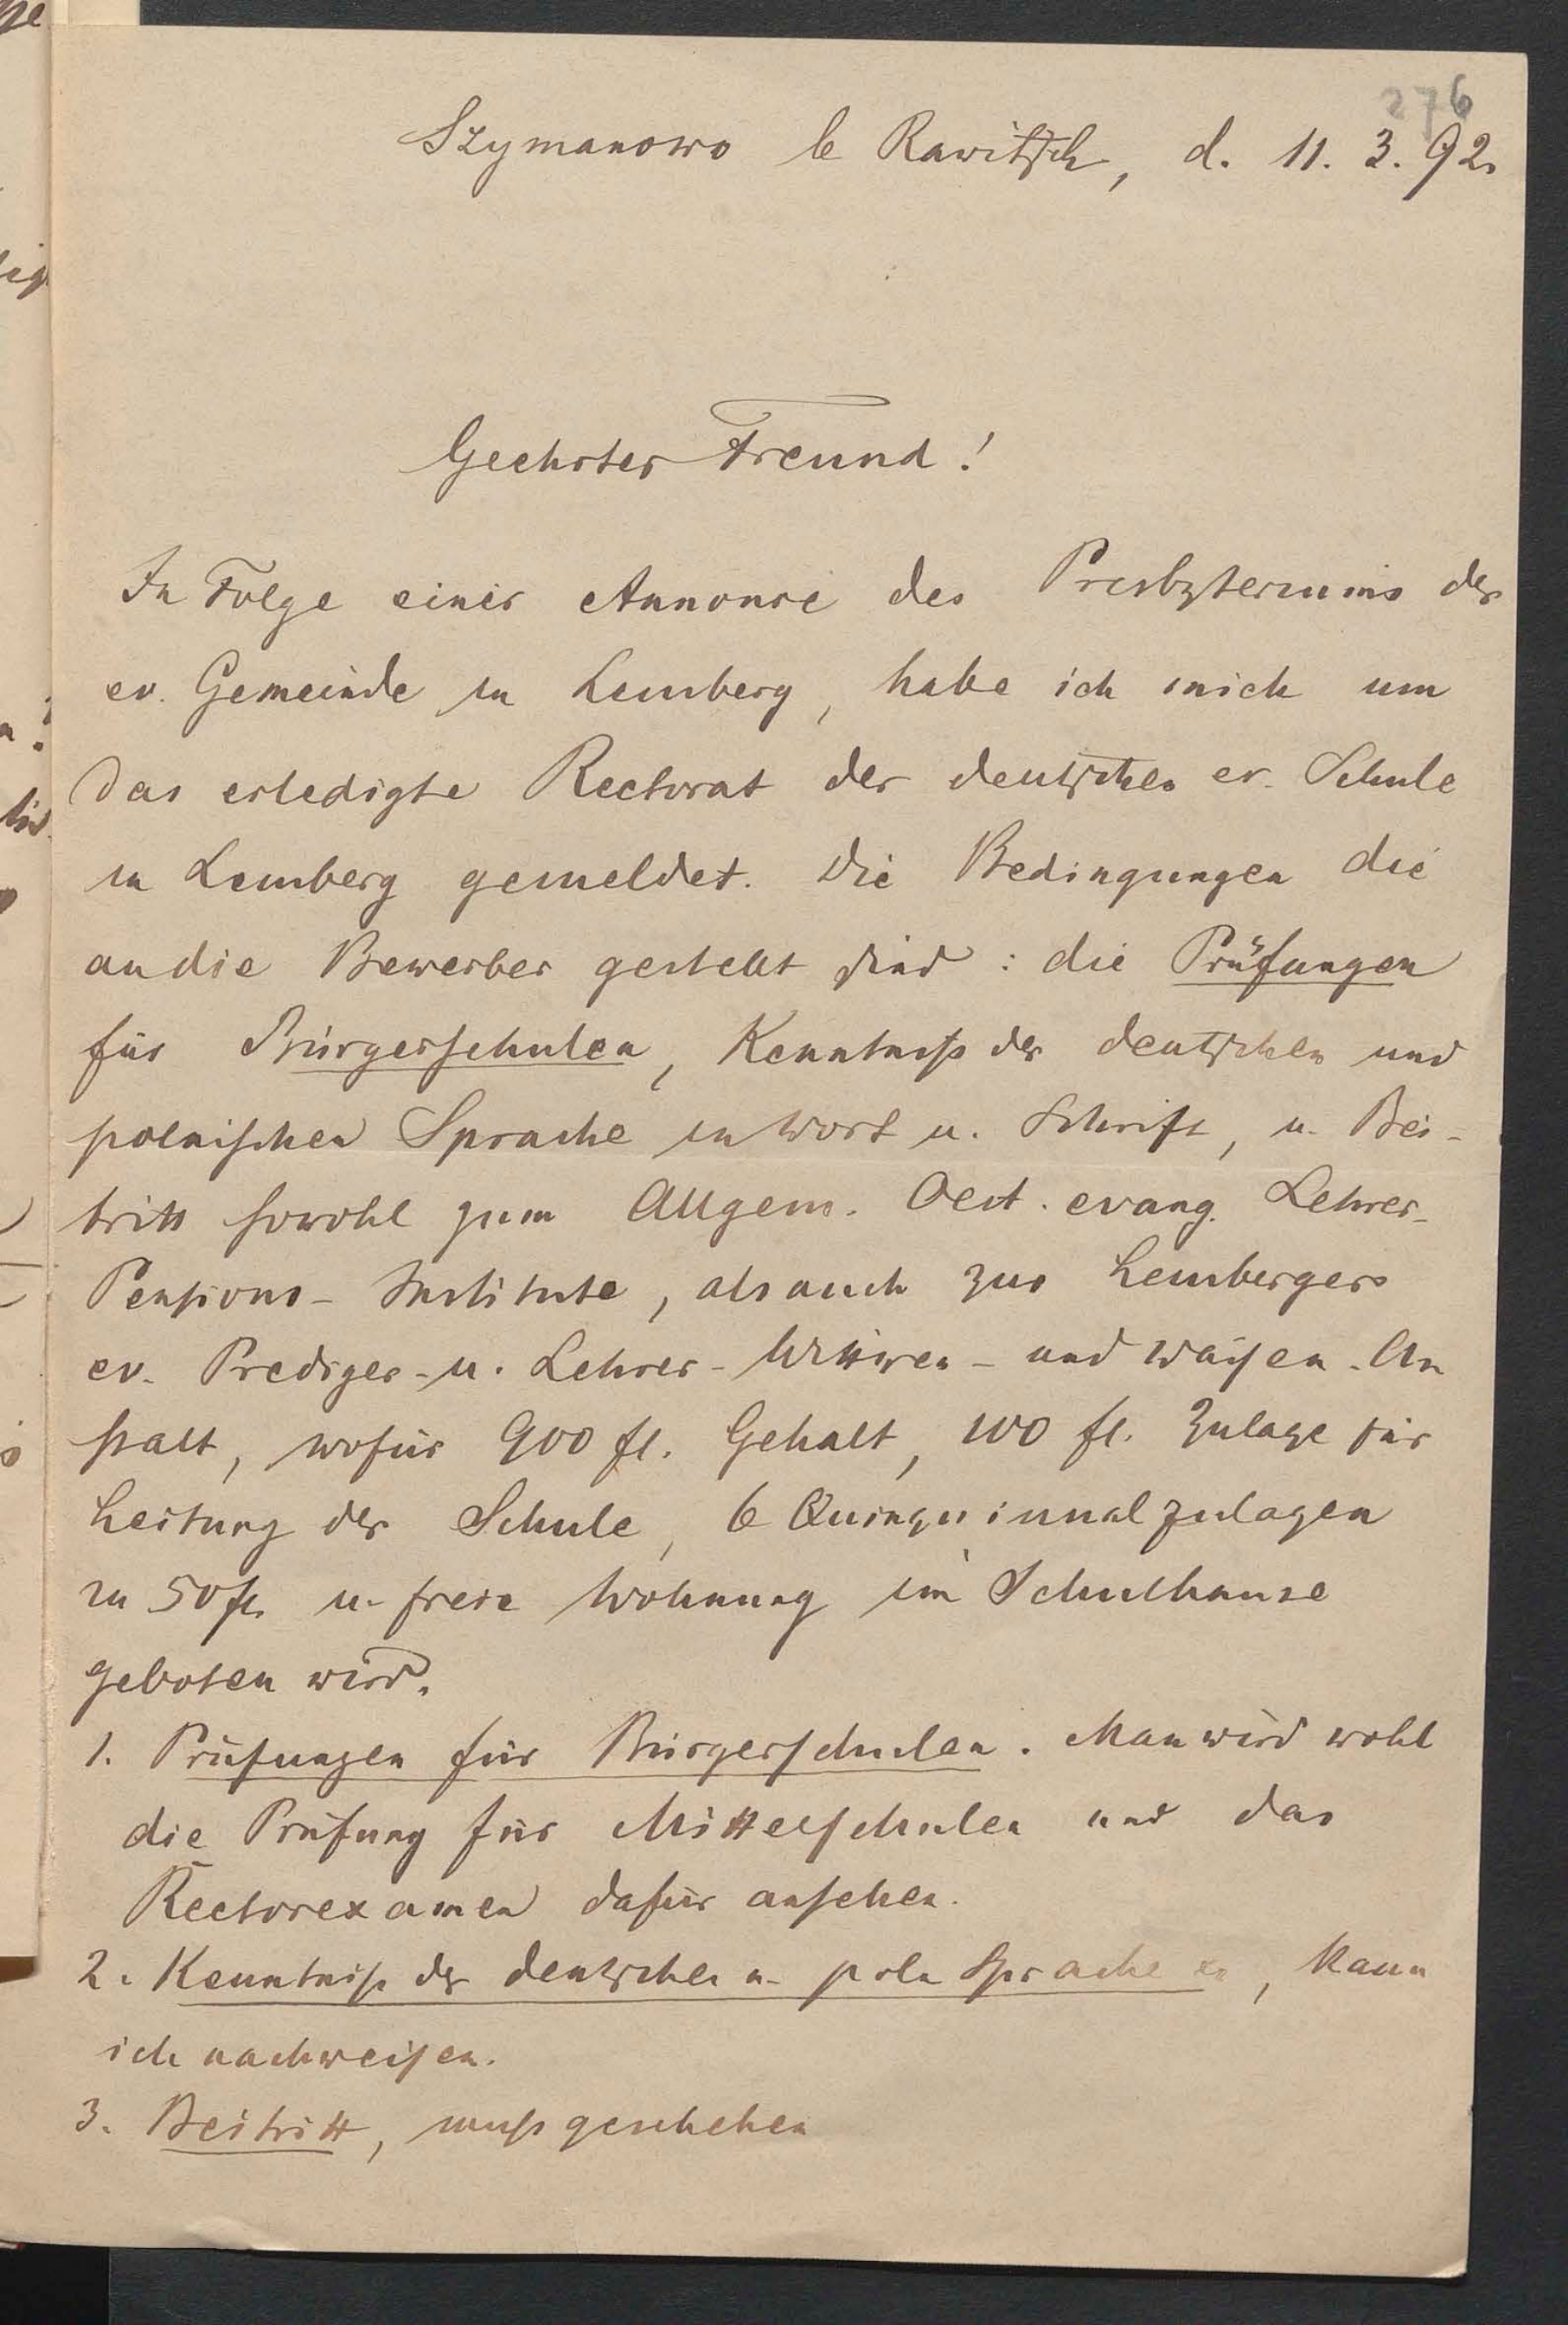 276
Szymanowo b Rawitsch, d. 11. 3. 92.
Geehrter Freund!
In Folge einer Annonce des Presbyteriums der
ev. Gemeinde in Lemberg, habe ich mich um
das erledigte Rectorat der deutschen ev. Schule
in Lemberg gemeldet. Die Bedingungen die
an die Bewerber gestellt sind: die Prüfungen
für Bürgerschulen, Kenntniß der deutschen und
polnischen Sprache in Wort u. Schrift, u. Bei-
tritt sowohl zum Allgem. Oest. evang. Lehrer-
Pensions-Institute, als auch zur Lemberger
ev. Prediger- u. Lehrer-Wittwen- und Waisen-An
stalt, wofür 900 fl. Gehalt, 100 fl. Zulage für
Leitung der Schule, 6 Quinquinnalzulagen
zu 50 fl. u. freie Wohnung im Schulhause
geboten wird.
1. Prüfungen für Bürgerschulen. Man wird wohl
die Prüfung für Mittelschulen und das
Rectorexamen dafür ansehen.
2. Kenntniß der deutschen u. poln Sprache, kann
ich nachweisen.
3. Beitritt, muß geschehen